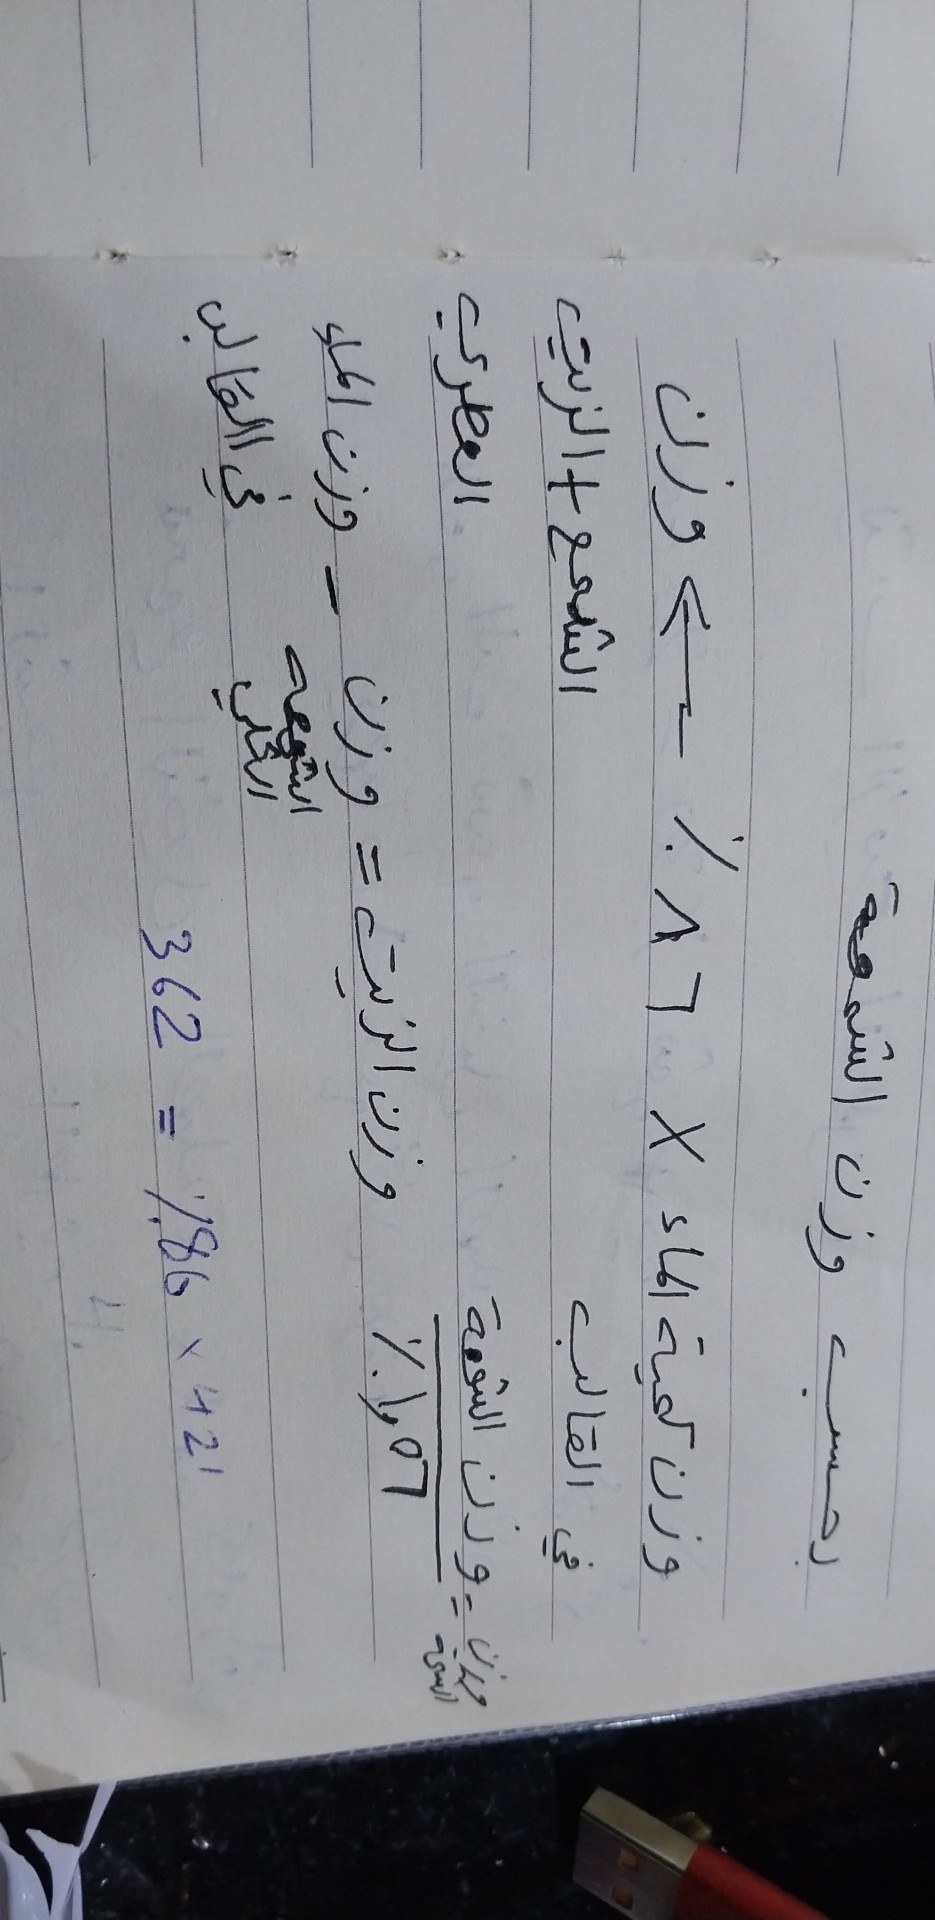 بحسب وزن الشمعة
وزن كمية الماء × ٨٦ ٪ ← وزن
في القالب الشمع + الزيت
العطري
وزن الشمعة = وزن الشمعة
١٠٦ ٪
وزن الزيت = وزن الشمعة الكلي - وزن الماء في القالب
421 × 86٪ = 362